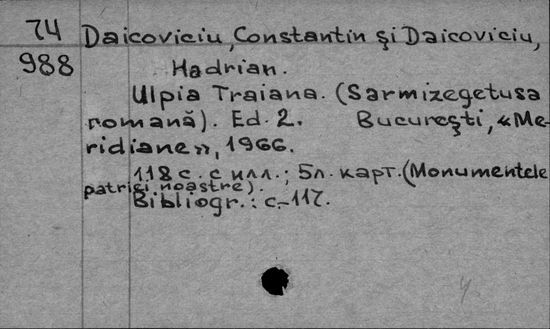 74 Daicoviciu, Constantin şi Daicoviciu,
988 Hadrian.
Ulpia Traiana. (Sarmizegetusa
romană). Ed. 2. Bucureşti, «Me-
ridiane», 1966.
118 с. с илл.; 5л. карт. (Monumentele
patriei noastre).
Bibliogr.: с.-117.